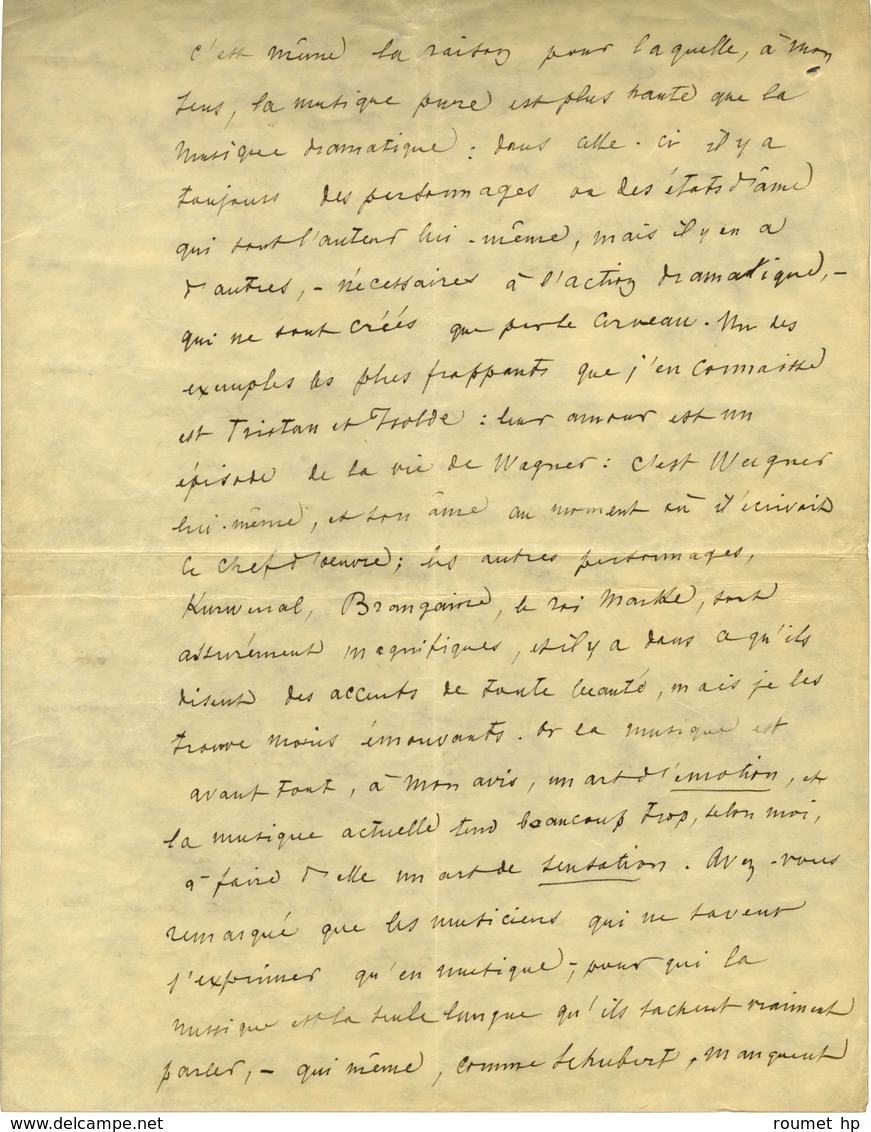 c'est même la raison pour laquelle, à mon
sens, la musique pure est plus haute que la
musique dramatique : dans celle-ci il y a
toujours des personnages ou des états d'âme
qui sont l'auteur lui-même, mais il y en a
d'autres, - nécessaires à l'action dramatique, -
qui ne sont créés que par le cerveau. Un des
exemples les plus frappants que j'en connaisse
est Tristan et Isolde : leur amour est un
épisode de la vie de Wagner : c'est Wagner
lui-même, et son âme au moment où il écrivait
le chef d'oeuvre; les autres personnages,
Kurwenal, Brangaine, le roi Marke, sont
assurément magnifiques, et il y a dans ce qu'ils
disent des accents de toute beauté, mais je les
trouve moins émouvants. Or la musique est
avant tout, à mon avis, un art d'émotion, et
la musique actuelle tend beaucoup trop, selon moi,
à faire d'elle un art de sensation. Avez-vous
remarqué que les musiciens qui ne savent
s'exprimer qu'en musique, - pour qui la
musique est la seule langue qu'ils sachent vraiment
parler, - qui même, comme Schubert, manquent
roumet hp